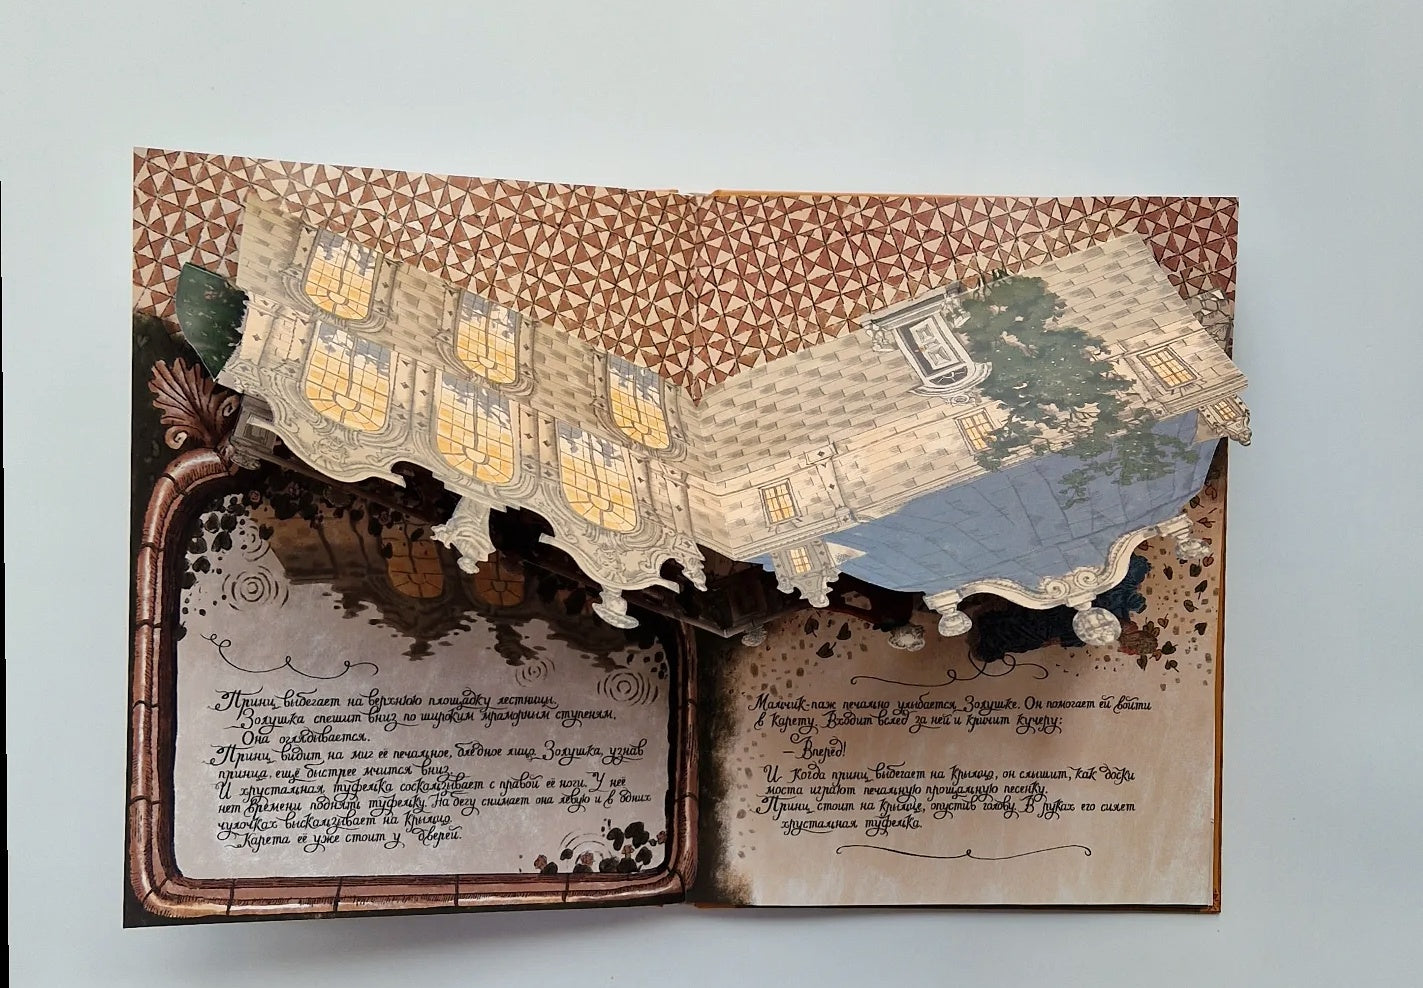 Принц выбегает на верхнюю площадку лестницы.
Золушка спешит вниз по широким мраморным ступеням.
Она оглядывается.
Принц видит на миг её печальное, бледное лицо. Золушка, узнав
принца, ещё быстрее мчится вниз.
И хрустальная туфелька соскальзывает с правой её ноги. У неё
нет времени поднять туфельку. На бегу снимает она левую и в одних
чулочках выскальзывает на крыльцо.
Карета её уже стоит у дверей.
Мальчик-паж печально улыбается Золушке. Он помогает ей войти
в карету. Входит вслед за ней и кричит кучеру:
— Вперёд!
И когда принц выбегает на крыльцо, он слышит, как доски
моста играют печальную прощальную песенку.
Принц стоит на крыльце, опустив голову. В руках его сияет
хрустальная туфелька.